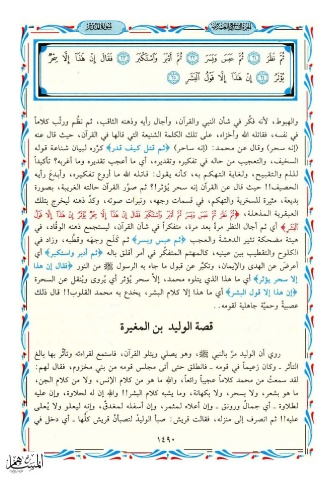 سورة المدثر
ثُمَّ نَظَرَ ﴿٢١﴾ ثُمَّ عَبَسَ وَبَسَرَ ﴿٢٢﴾ ثُمَّ أَدْبَرَ وَاسْتَكْبَرَ ﴿٢٣﴾ فَقَالَ إِنْ هَٰذَا إِلَّا سِحْرٌ
يُؤْثَرُ ﴿٢٤﴾ إِنْ هَٰذَا إِلَّا قَوْلُ الْبَشَرِ ﴿٢٥﴾
والهبوط، لأنه فكّر في شأن النبي والقرآن، وأجال رأيه وذهنه الثاقب، ثم نظّم ورتّب كلاماً
في نفسه، فقاتله الله وأخزاه، على تلك الكلمة الشنيعة التي قالها في القرآن، حيث قال عنه
(إنه سحر) وقال عن محمد: (إنه ساحر) ﴿ثم قتل كيف قدر﴾ كرّره لبيان شناعة قوله
السخيف، والتعجيب من حاله في تفكيره وتقديره، أي ما أعجب تقديره وما أغربه؟ تأكيداً
للذم والتقبيح، ولغاية التهكم به، كأنه يقول: قاتله الله ما أروع تفكيره، وأبدع رأيه
الحصيف!! حيث قال عن القرآن إنه سحر يُؤثر!؟ ثم صوّر القرآن حالته الغريبة، بصورة
بديعة، مثيرة للسخرية والتهكم، في قسمات وجهه، ونبرات صوته، وكدّ ذهنه ليخرج بتلك
العبقرية المذهلة، ﴿ثُمَّ نَظَرَ ثُمَّ عَبَسَ وَبَسَرَ ثُمَّ أَدْبَرَ وَاسْتَكْبَرَ فَقَالَ إِنْ هَٰذَا إِلَّا سِحْرٌ يُؤْثَرُ إِنْ هَٰذَا إِلَّا قَوْلُ
الْبَشَرِ﴾ أي ثم أجال النظر مرةً بعد مرة، متفكراً في شأن القرآن، ليستجمع ذهنه الوقّاد، في
هيئة مضحكة تثير الدهشة والعجب ﴿ثم عبس وبسر﴾ ثم كلح وجهه وقطّبه، وزاد في
الكلوح والتقطيب بين عينيه، كالمهتم المتفكّر في أمر أقلق باله ﴿ثم أدبر واستكبر﴾ أي
أعرض عن الهدى والإيمان، وتكبّر عن قبول ما جاء به الرسول ﷺ من النور ﴿فقال إن هذا
إلا سحر يؤثر﴾ أي ما هذا الذي يتلوه محمد، إلاّ سحر يُؤثر أي يُروى ويُنقل عن السحرة
﴿إن هذا إلا قول البشر﴾ أي ما هذا إلا كلام البشر، يخدع به محمد القلوب!! قال ذلك
عصبيةً وحميّة جاهلية لقومه..
قصة الوليد بن المغيرة
روي أن الوليد مرّ بالنبي ﷺ، وهو يصلي ويتلو القرآن، فاستمع لقراءته وتأثر بها بالغ
التأثر ـ وكان زعيماً في قومه ـ فانطلق حتى أتى مجلس قومه من بني مخزوم، فقال لهم:
لقد سمعتُ من محمد كلاماً عجيباً رائعاً، والله ما هو من كلام الإنس، ولا من كلام الجن،
ما هو بشعر، ولا بسحر، ولا بكهانة، وما يشبه كلام البشر!! والله إن له لحلاوة، وإن عليه
لطلاوة ـ أي جمالٌ ورونق ـ وإن أعلاه لمثمر، وإن أسفله لمغدق، وإنه ليعلو ولا يُعلى
عليه!! ثم انصرف إلى منزله، فقالت قريش: صبأ الوليدُ لتصبأنّ قريش كلّها ـ أي دخل في
١٤٩٠